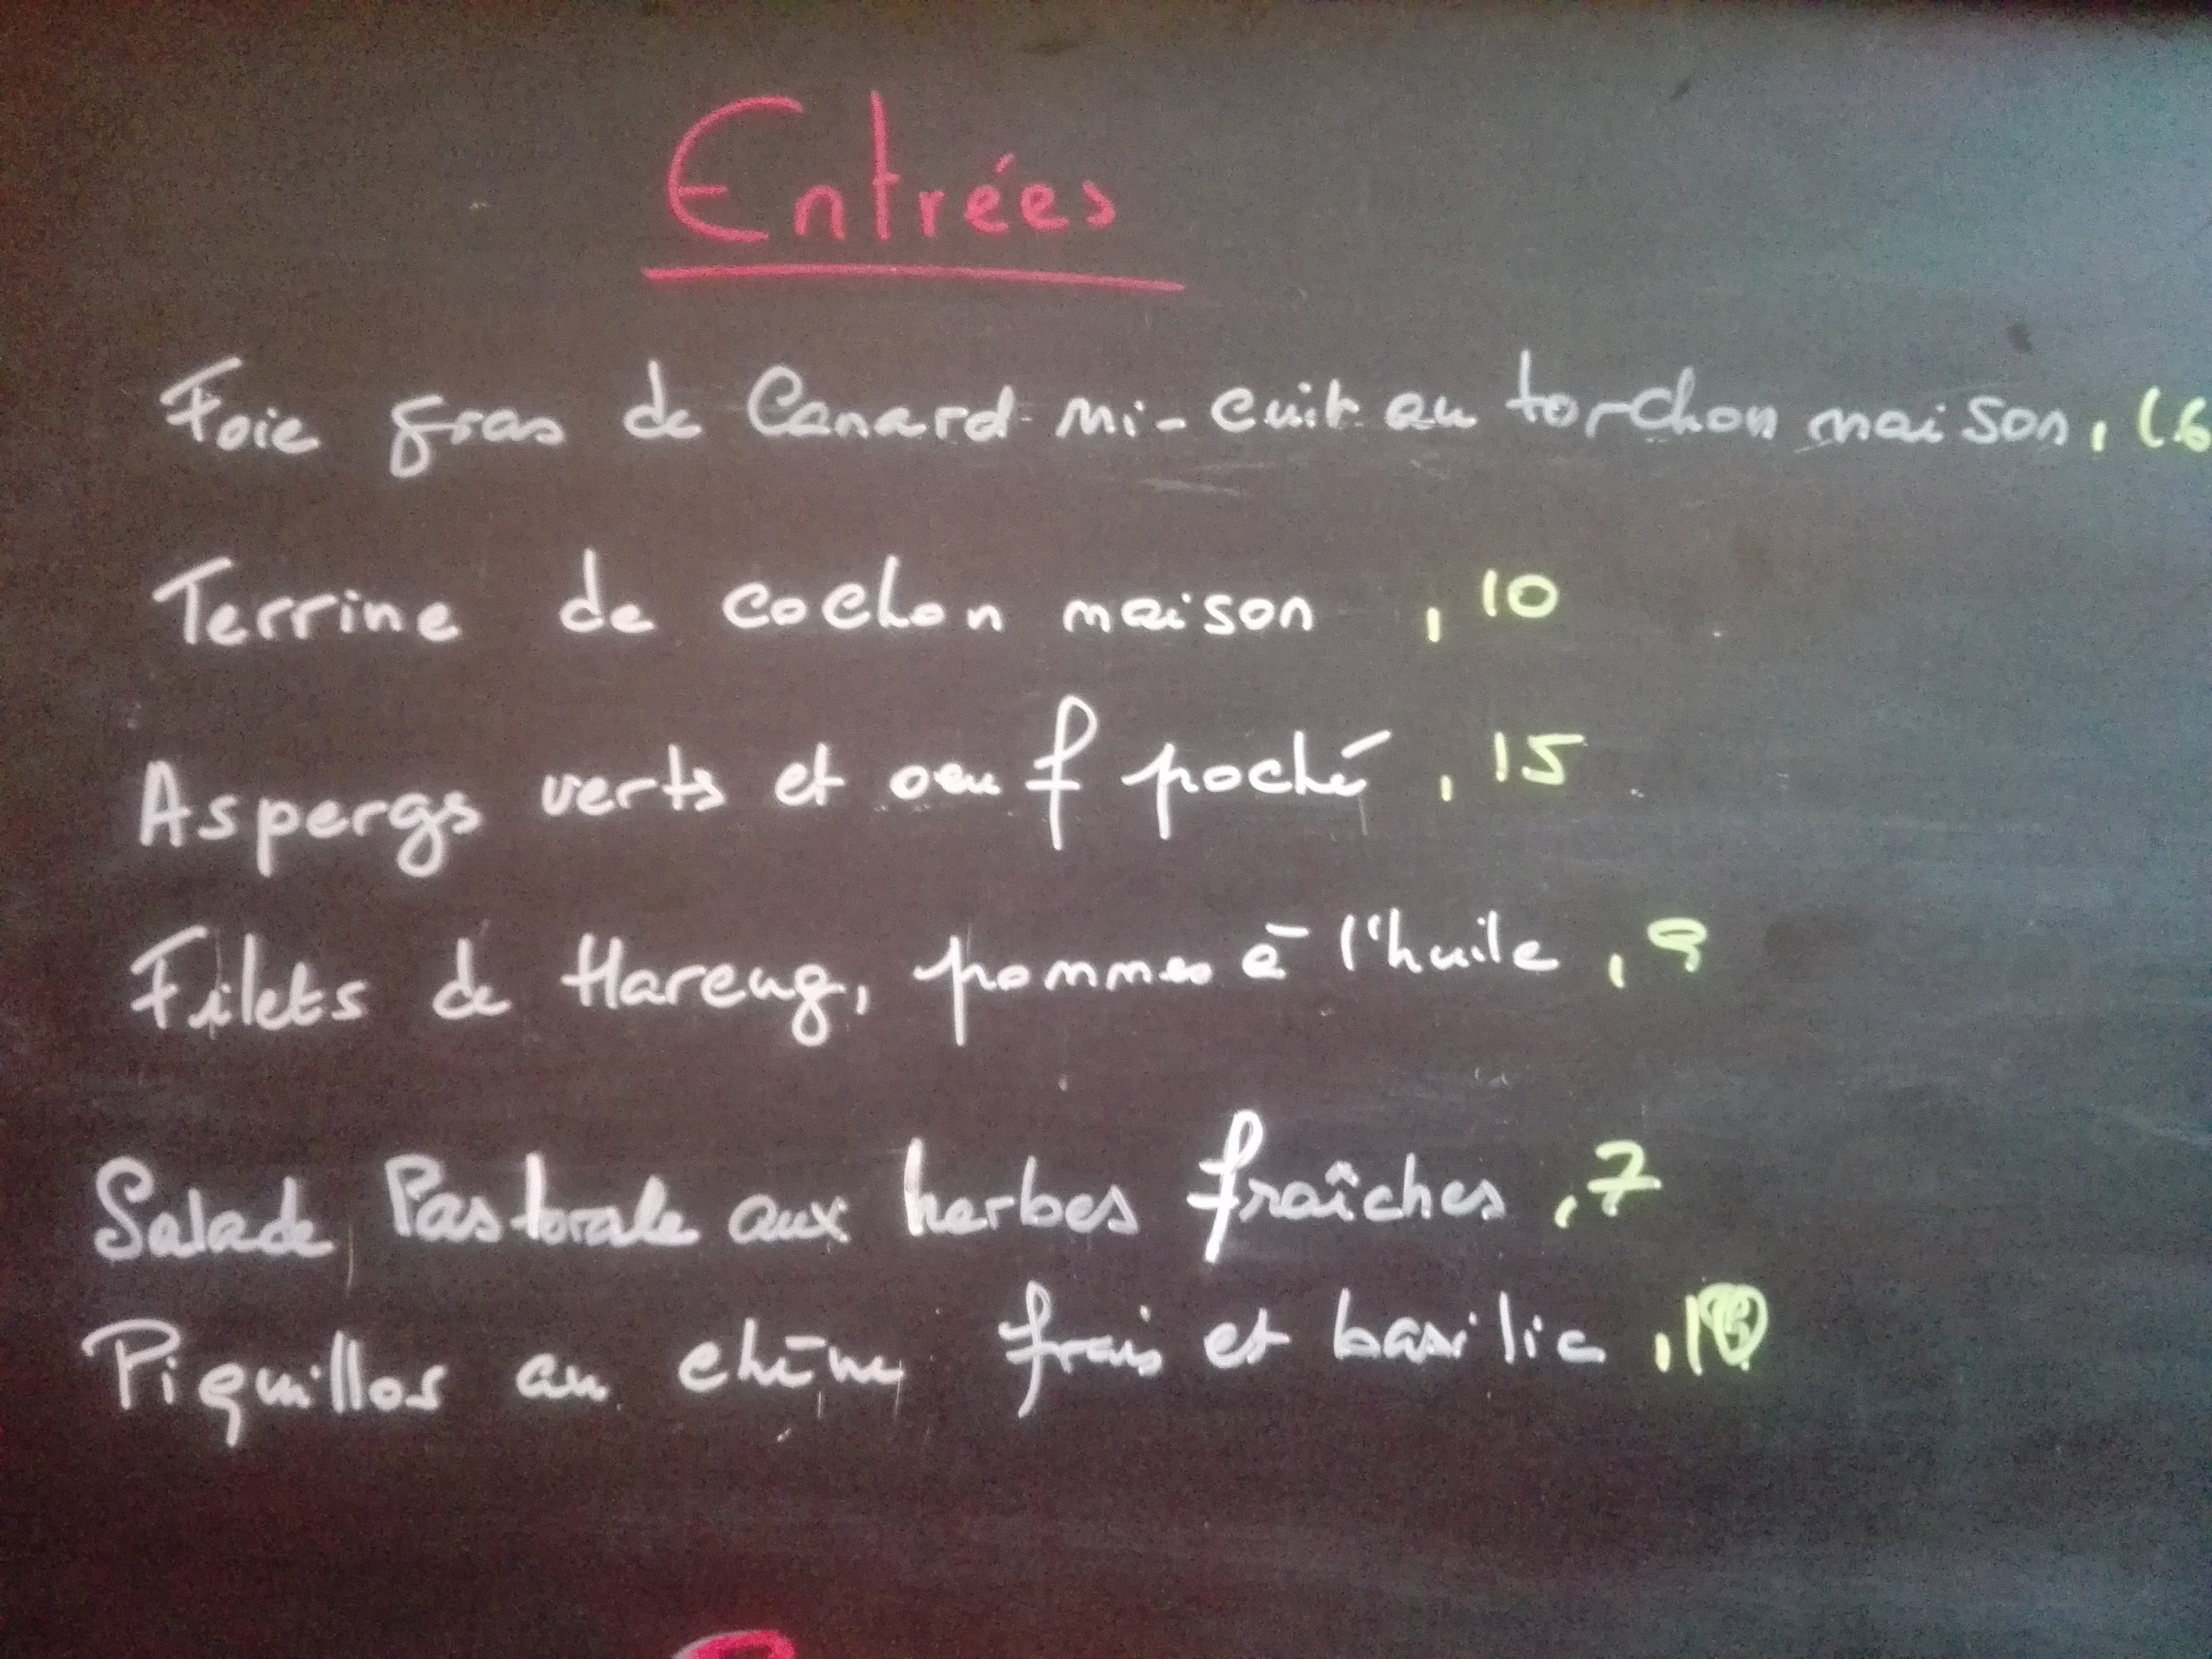 Entrées
Foie gras de Canard mi-cuit au torchon maison, 16
Terrine de cochon maison , 10
Aspergs verts et oeuf poché , 15
Filets de Hareng, pommes à l'huile , 9
Salade Pastorale aux herbes fraîches , 7
Piquillos au chèvre frais et basilic